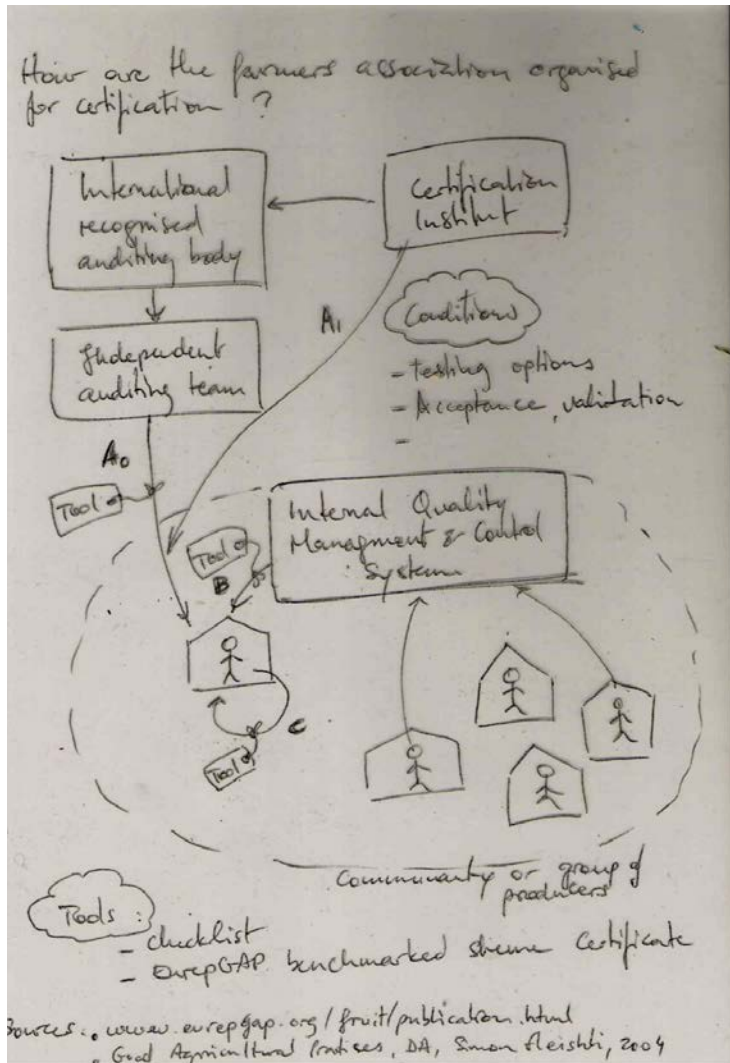 How are the farmers association organised
for certification ?
International
recognised
auditing body
Certification
Institut
Independent
auditing team
A1
Conditions
- testing options
- Acceptance, validation
-
A0
Tool
Internal Quality
Managment & Control
System
Tool
B
C
Tool
Community or group of
producers
Tools :
- checklist
- EurepGAP benchmarked sheme certificate
Sources : . www.eurepgap.org/fruit/publication.html
. Good Agricultural Practises, DA, Simon 2004